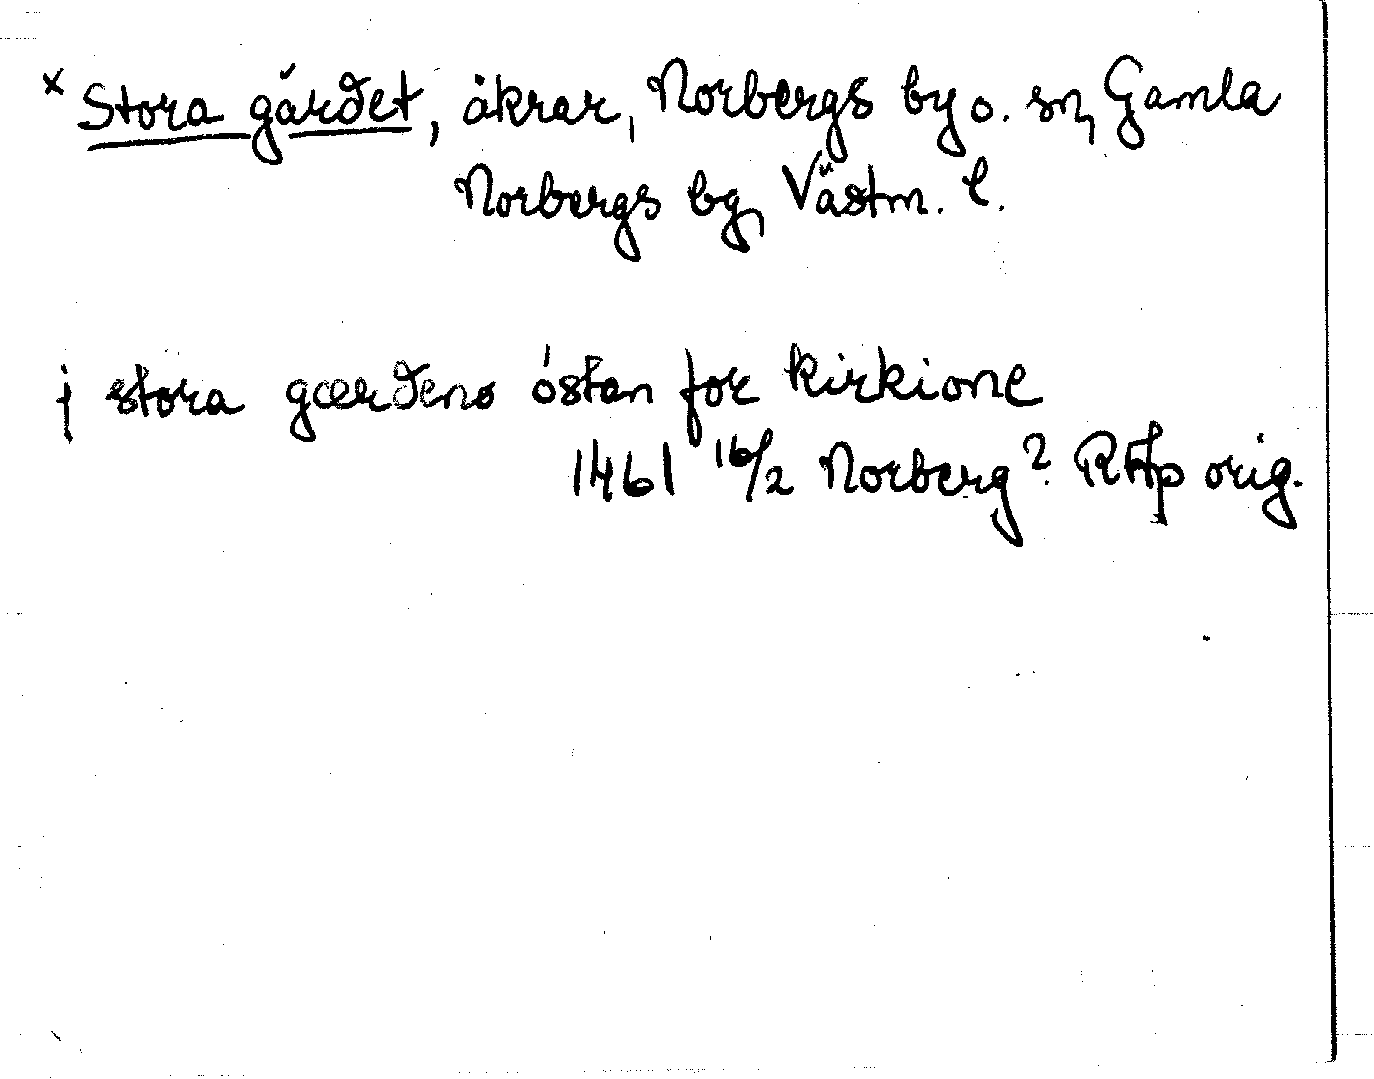 x Stora gärdet, åkrar, Norbergs by o. sn, Gamla
Norbergs bg, Västm. l.
j stora gærdeno östan for kirkione
1461 16/2 Norberg? RAp orig.